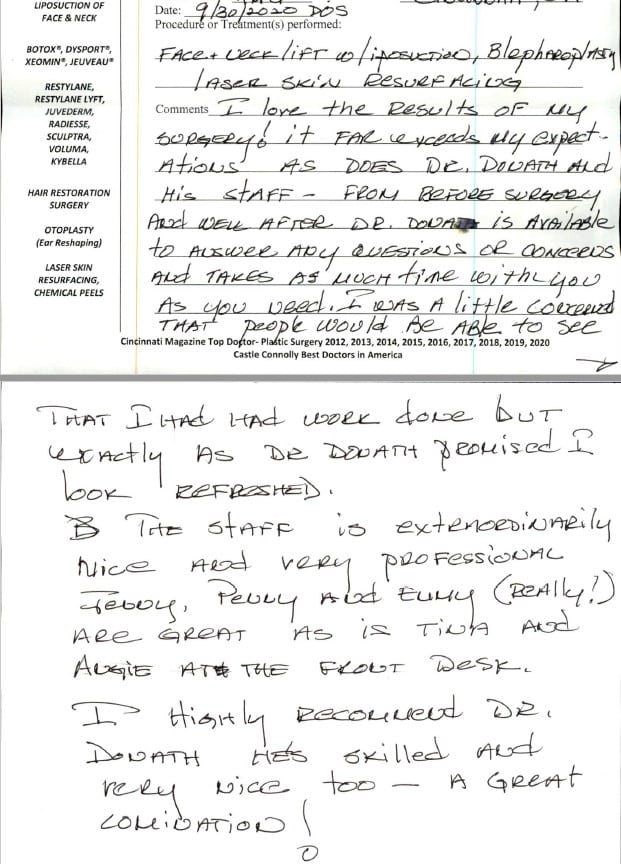 LIPOSUCTION OF
FACE & NECK
BOTOX®, DYSPORT®,
XEOMIN®, JEUVEAU®
RESTYLANE,
RESTYLANE LYFT,
JUVEDERM,
RADIESSE,
SCULPTRA,
VOLUMA,
KYBELLA
HAIR RESTORATION
SURGERY
OTOPLASTY
(Ear Reshaping)
LASER SKIN
RESURFACING,
CHEMICAL PEELS
Date: 9/30/2020 DOS
Procedure or Treatment(s) performed:
FACE + NECK lift w/liposuction, Blepharoplasty
laser skin RESURFACING
Comments I love the Results of MY
SURGERY! it FAR exceeds My expect-
ations AS DOES DR. DONATH And
His STAFF - FROM BEFORE SURGERY
And WELL AFTER DR. DONATH is AVAILABLE
to ANSWER ANY QUESTIONS OR CONCERNS
AND TAKES AS MUCH time with you
As you need. I WAS A little concerned
THAT people would Be ABle to see
Cincinnati Magazine Top Doctor- Plastic Surgery 2012, 2013, 2014, 2015, 2016, 2017, 2018, 2019, 2020
Castle Connolly Best Doctors in America
THAT I HAD HAD WORK done but
exactly AS DR DONATH promised I
look REFRESHED.
THE STAFF is extraordinarily
Nice And very PROFESSIONAL
Penny And EMMY (REAlly!)
ARE GREAT AS is TINA AND
AUGIE AT THE FRONT DESK.
I Highly RECOMMEND DR.
DONATH HE'S skilled AND
very NICE too - A GREAT
COMIBATION!